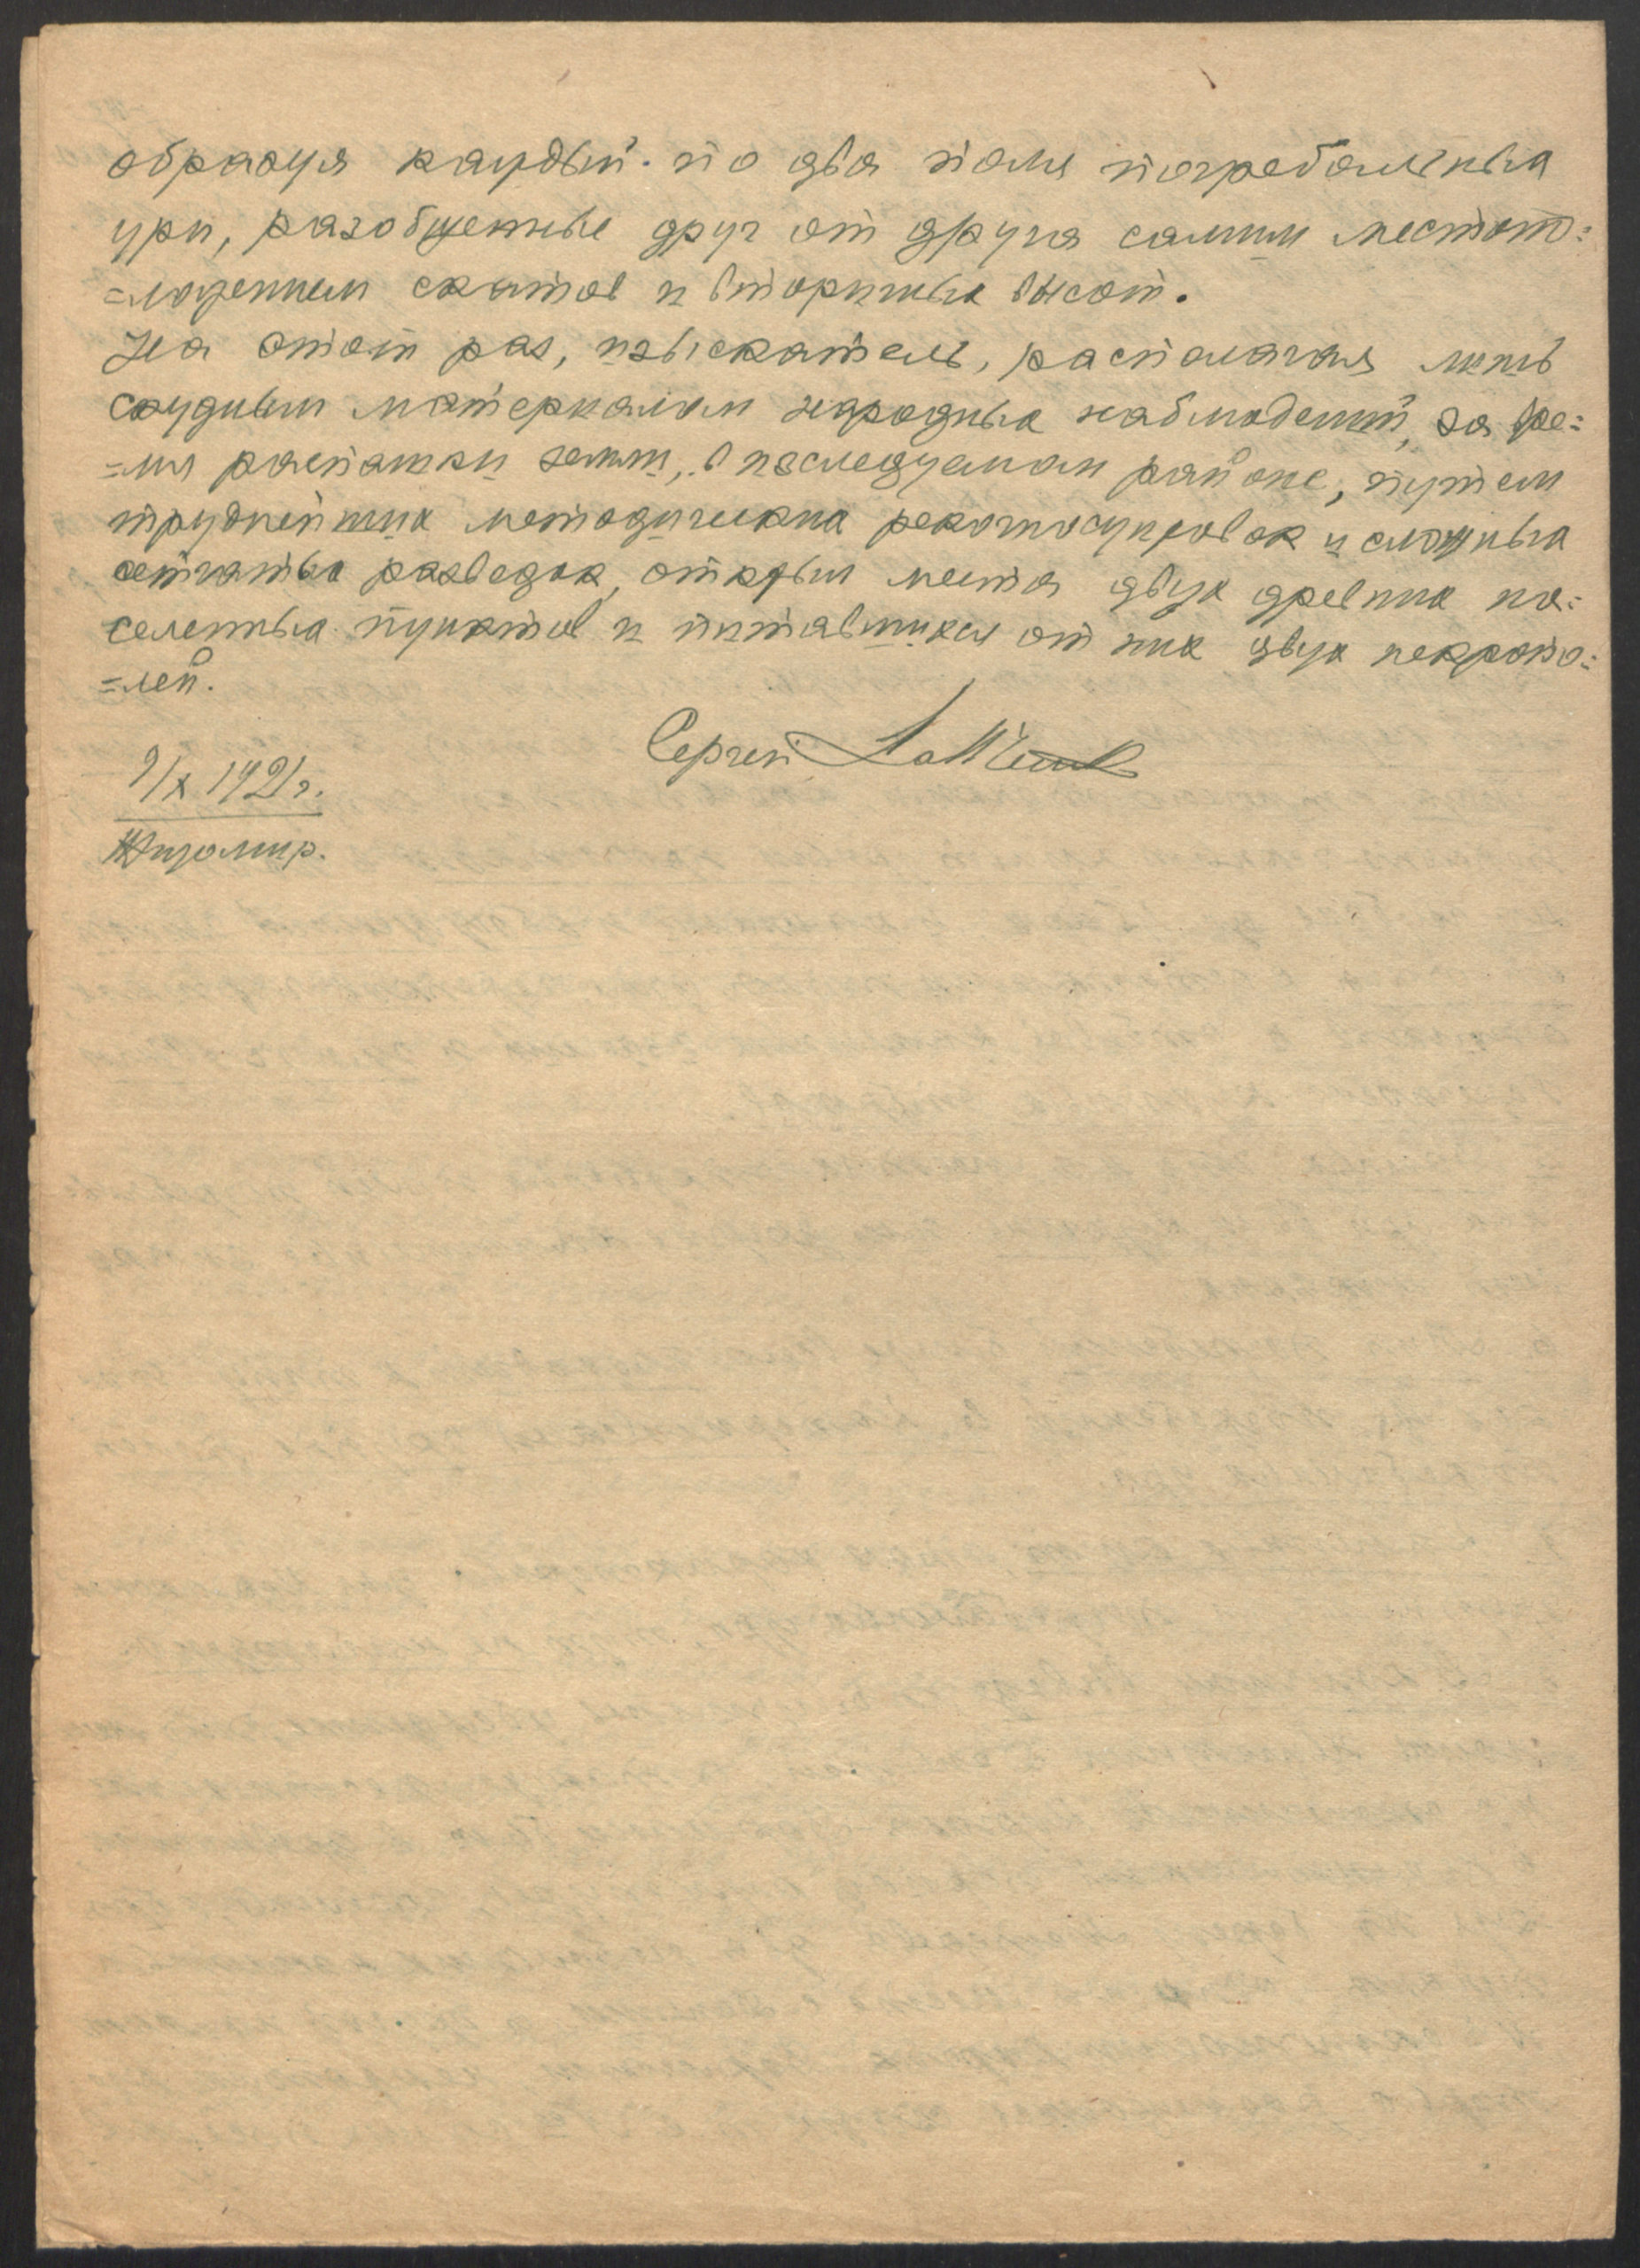 образуя каждый по два поля погребальных
урн, разобщенные друг от друга самим местопо=
=ложением скатов и вторичных высот.
На этот раз, изыскатель, располагая лишь
скудным материалом народных наблюдений, за вре=
=мя распашки земли, в изследуемом районе, путем
труднейших методических рекогносцировок и сложных
сетчатых разведок, открыл места двух древних на=
селенных пунктов и питавшихся от них двух некропо=
=лей.
Сергей
9/X 1921 г.
Житомир.